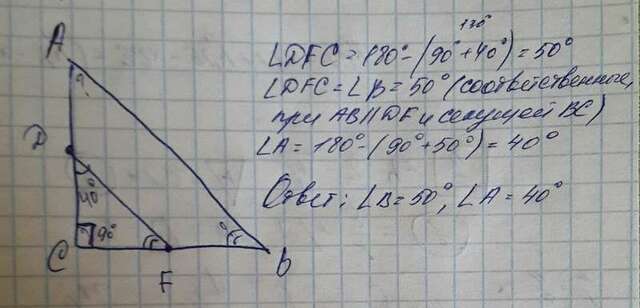 A
?
D
40°
90°
C
F
B
?
130°
∠DFC = 180° - (90° + 40°) = 50°
∠DFC = ∠B = 50° (соответственные,
при AB || DF и секущей BC)
∠A = 180° - (90° + 50°) = 40°
Ответ: ∠B = 50°, ∠A = 40°